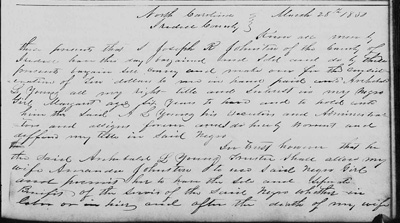 North Carolina } March 25th 18
Iredell County } Know all men by
these presents that I Joseph R Johnston of the County of
Iredell have this day bargained and sold and do by these
presents bargain sell convey and make over for the consid-
eration of ten dollars to me in hand paid unto Archibald
L Young all my right title and interest in my Negro
Girl Margaret aged six years to have and to hold unto
him the said A L Young his executors and Administra-
tors and assigns forever and do hereby warrant and
defend my title in said Negro
In trust however that he
the said Archibald L Young Trustee shall allow my
wife Amanda Johnston to use said Negro Girl
and permit her to have the sole and separate
Benefit of the service of the said Negro whether in
labor or in hire and after the death of my wife